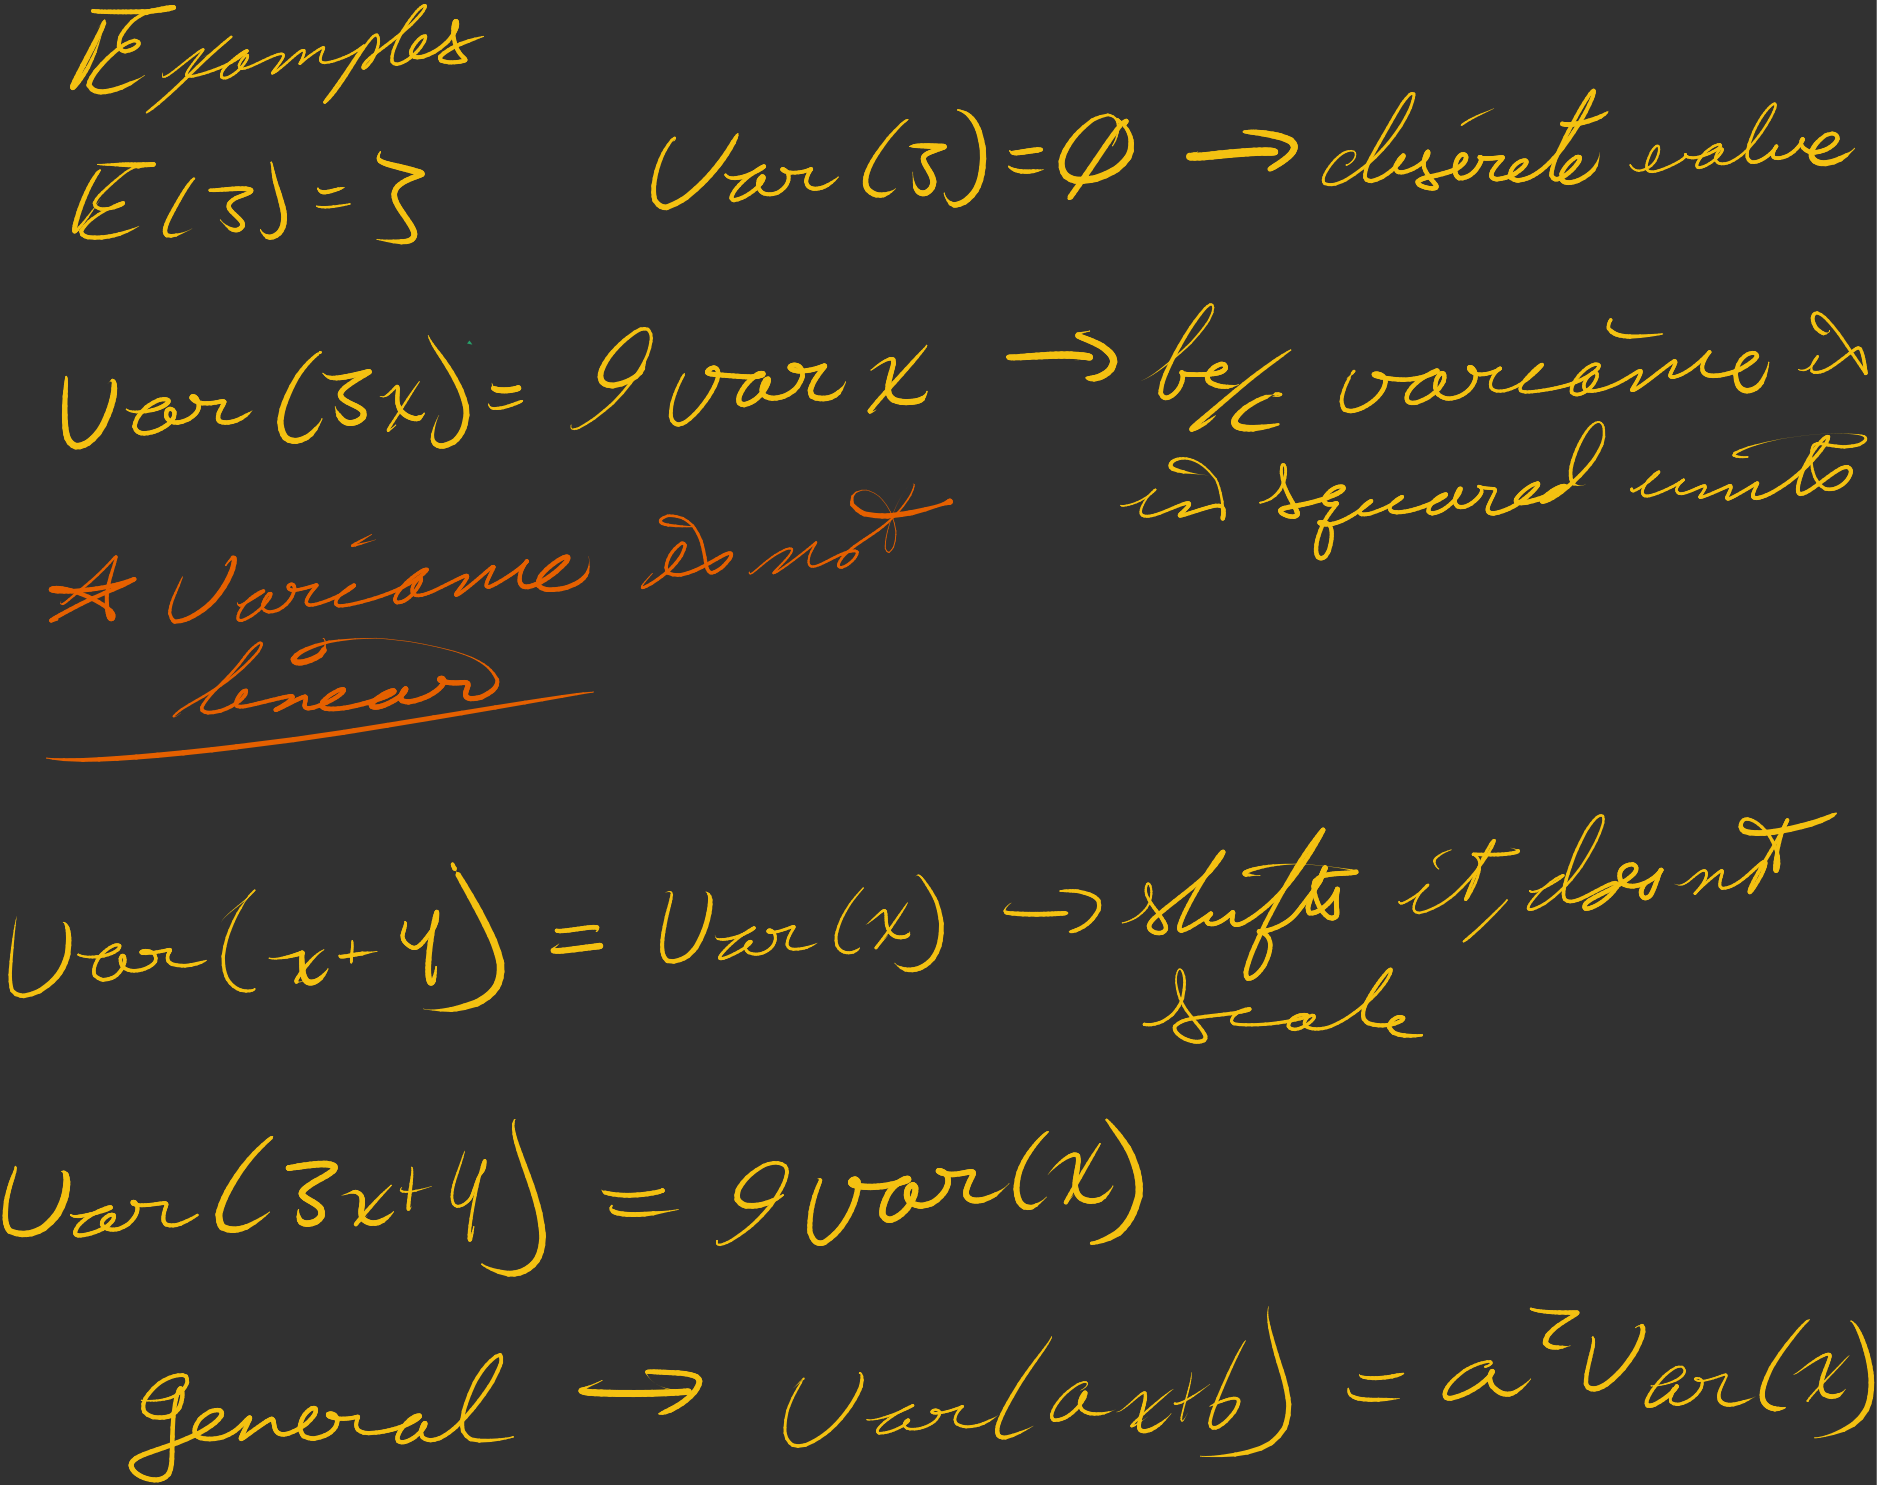 Examples
E(3) = 3 Var(3) = Ø → discrete value
Var(3x) = 9 var x → be/c variance is
in squared units
* Variance is not
linear
Var(x+4) = Var(x) → shifts it, does not
scale
Var(3x+4) = 9 var(x)
general → Var(ax+b) = a² Var(x)